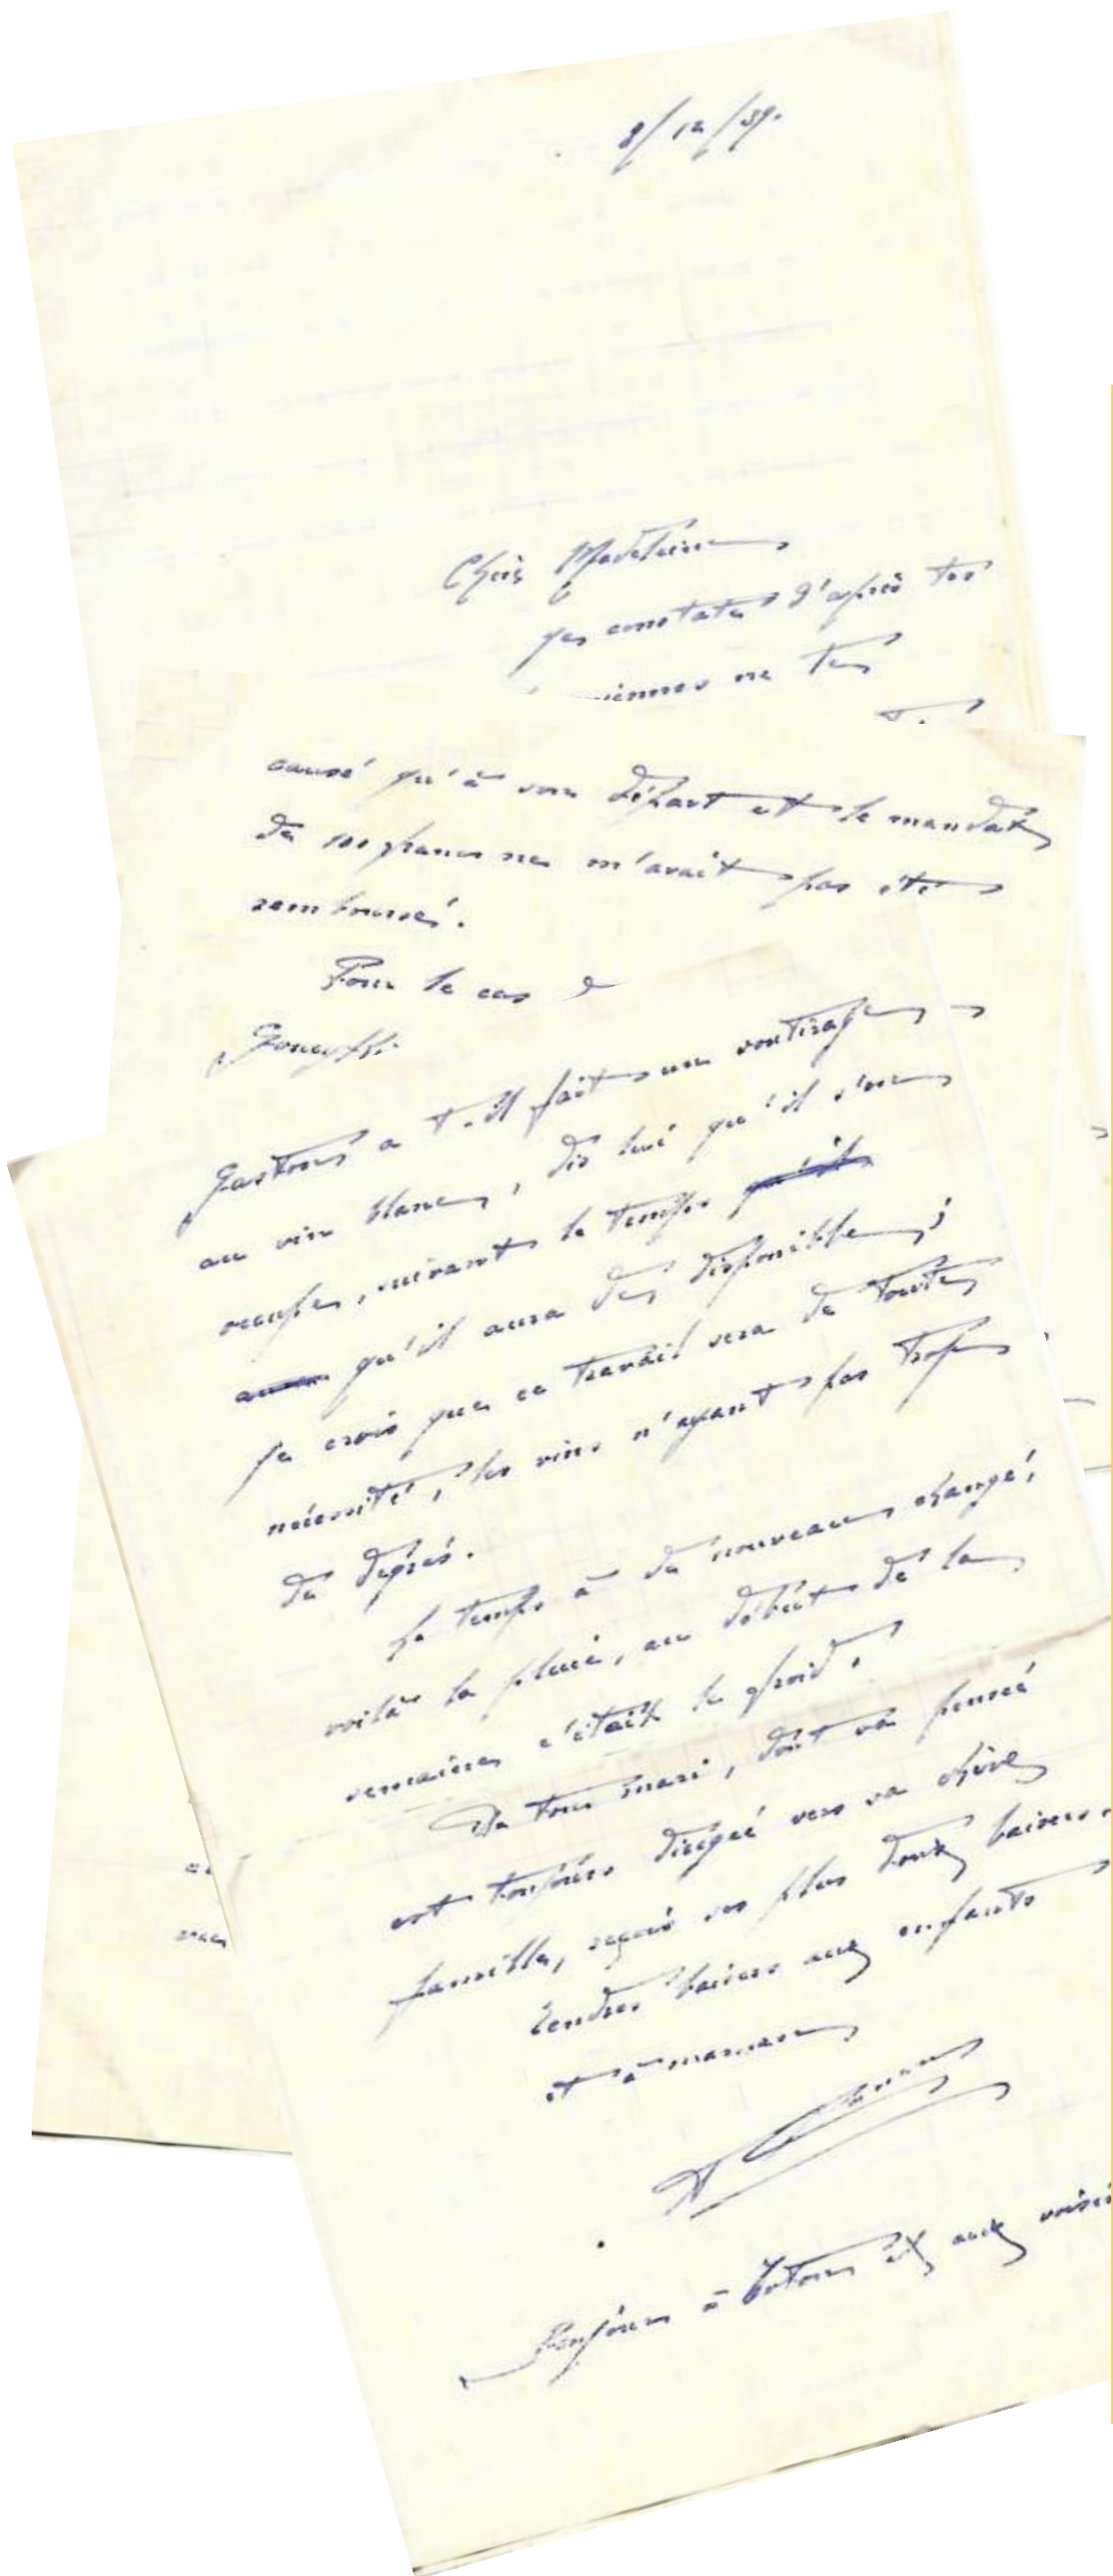 8/12/39.
Chère Madeleine
je constate d'après tes
ne tes
causé qu'à son départ et le mandat
de 100 francs ne m'avait pas été
remboursé.
Pour le cas
Gaston a t-il fait un soutirage
au vin blanc, dis lui qu'il s'en
occupe, suivant le temps qu'il
qu'il aura de disponible;
je crois que ce travail sera de toute
nécessité, les vins n'ayant pas trop
de degrés.
Le temps à de nouveau changé,
voilà la pluie, au début de la
semaine c'était le froid.
De ton mari, dont sa pensée
est toujours dirigée vers sa chère
famille, reçois ses plus doux baisers.
Tendres baisers aux enfants
et à maman
Bonjour à Totor et aux